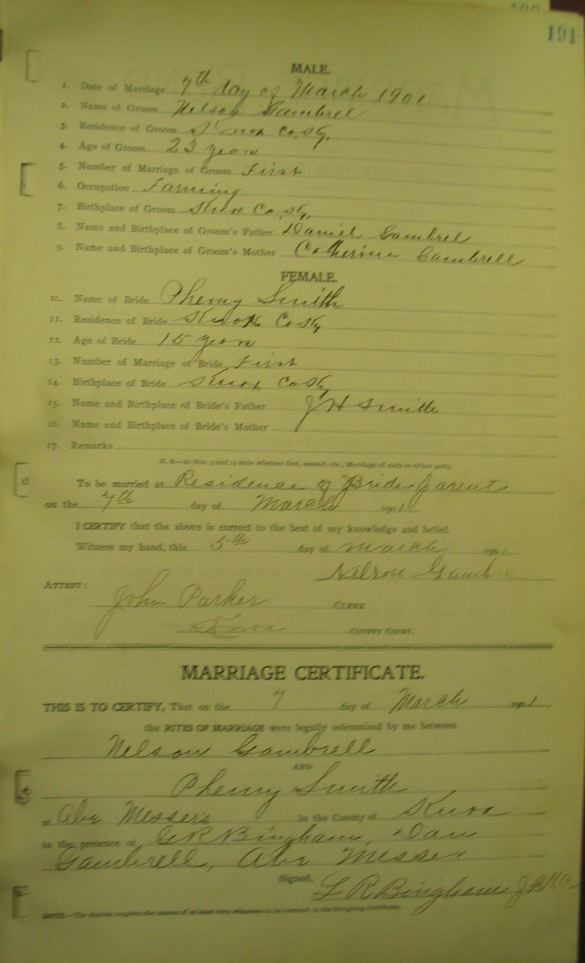 191
MALE.
1. Date of Marriage 7th day of March 1901
2. Name of Groom Nelson Gambrel
3. Residence of Groom Knox Co, Ky.
4. Age of Groom 23 years
5. Number of Marriage of Groom First
6. Occupation Farming
7. Birthplace of Groom Knox Co, Ky,
8. Name and Birthplace of Groom's Father Daniel Gambrel
9. Name and Birthplace of Groom's Mother Catherine Gambrell
FEMALE.
10. Name of Bride Pheny Smith
11. Residence of Bride Knox Co Ky
12. Age of Bride 15 years
13. Number of Marriage of Bride First
14. Birthplace of Bride Knox Co Ky,
15. Name and Birthplace of Bride's Father J H Smith
16. Name and Birthplace of Bride's Mother
17. Remarks
N. B.—In Nos. 5 and 13 state whether first, second, etc., Marriage of each or either party.
To be married at Residence of Bride Parent
on the 7th day of March 1901
I CERTIFY that the above is correct to the best of my knowledge and belief.
Witness my hand, this 5th day of March 1901
Nelson Gambrel
ATTEST:
John Parker CLERK
Knox COUNTY COURT.
MARRIAGE CERTIFICATE.
THIS IS TO CERTIFY, That on the 7 day of March 1901,
the RITES OF MARRIAGE were legally solemnized by me between
Nelson Gambrell
AND
Pheny Smith
at Abe Messers in the County of Knox
in the presence of G R Bingham, Dan
Gambrell, Abe Messer
Signed, L R Bingham
NOTE.—The Statute requires the names of at least two witnesses to be inserted in the foregoing Certificate.